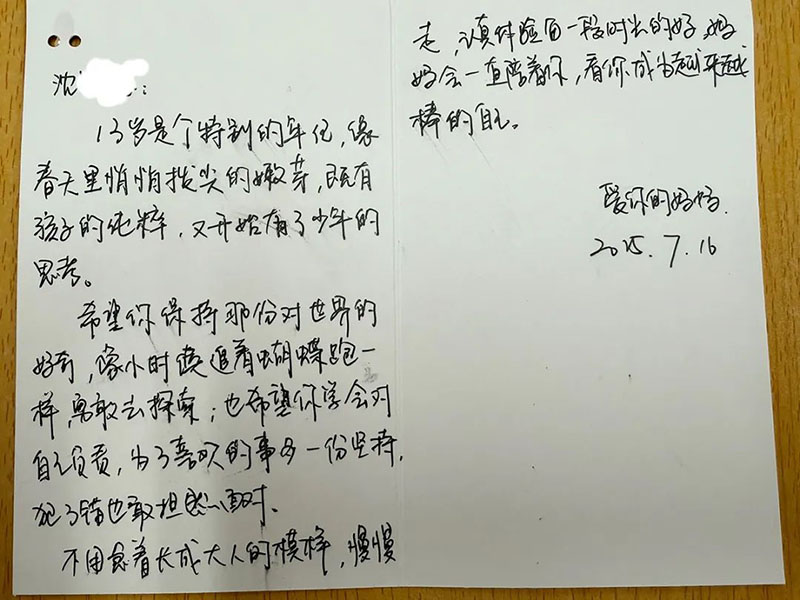 沈
:
13岁是个特别的年纪,像
春天里悄悄拔尖的嫩芽,既有
孩子的纯粹,又开始有了少年的
思考。
希望你保持那份对世界的
好奇,像小时候追着蝴蝶跑一
样,勇敢去探索;也希望你学会对
自己负责,为了喜欢的事多一份坚持,
犯了错也敢坦然面对。
不用急着长成大人的模样,慢慢
走,认真体验每一段时光的好,妈
妈会一直陪着你,看你成为越来越
棒的自己。
爱你的妈妈.
2025.7.16